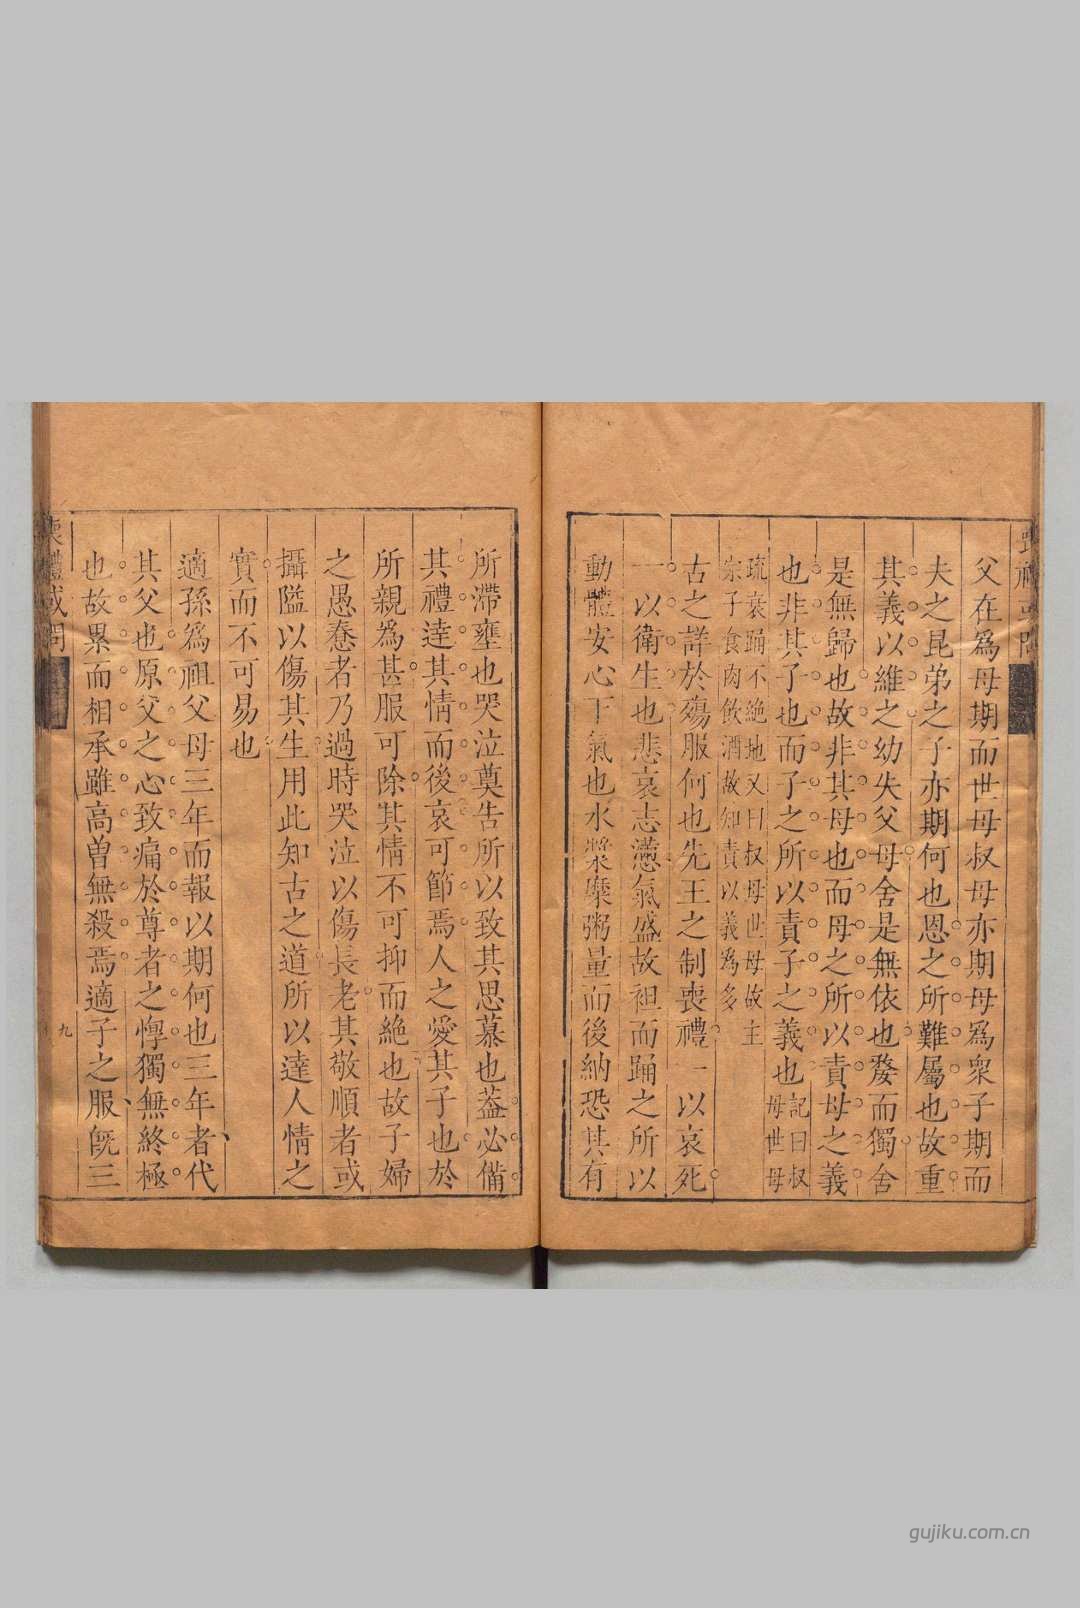 父在爲母期而世母叔母亦期母爲衆子期而
夫之昆弟之子亦期何也恩之所難屬也故重
其義以維之幼失父母舍是無依也嫠而獨舍
是無歸也故非其母也而母之所以責母之義
也非其子也而子之所以責子之義也記曰叔
母世母
疏衰踊不絶地又曰叔母世母故主
宗子食肉飲酒故知責以義爲多
古之詳於殤服何也先王之制喪禮一以哀死
一以衛生也悲哀志懣氣盛故袒而踊之所以
動體安心下氣也水漿糜粥量而後納恐其有
所滯壅也哭泣奠告所以致其思慕也葢必備
其禮達其情而後哀可節焉人之愛其子也於
所親爲甚服可除其情不可抑而絶也故子婦
之愚惷者乃過時哭泣以傷長老其敬順者或
攝隘以傷其生用此知古之道所以達人情之
實而不可易也
適孫爲祖父母三年而報以期何也三年者代
其父也原父之心致痛於尊者之惸獨無終極
也故累而相承雖高曽無殺焉適子之服旣三
喪禮或問
九
gujiku.com.cn